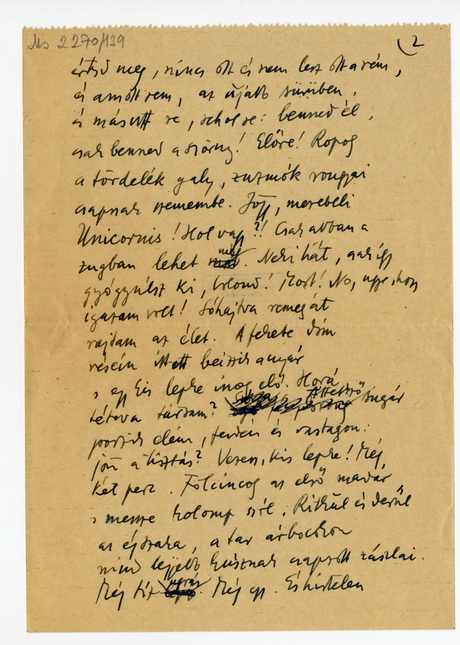 Ms 2270/139
2
értsd meg, nincs ott és nem lesz ott a rém,
és amott sem, az újabb sűrűben,
és másutt se, sehol se: benned él,
csak benned a szörny! Előre! Ropog
a tördelék galy, zuzmók rongyai
csapnak szemembe. Jőjj, merebeli
Unicornis! Hol vagy?! Csak abban a
zugban lehet még. Neki hát, csak így
gyógyulsz ki, bolond! Most! No, ugye, hogy
igazam volt! Sóhajtva remeg át
rajtam az élet. A fekete lomb
résein itt-ott beszűrik a nyár
s egy kis lepke inog elő. Hová
tétova társam? Áttetsző sugár
porzik elém, ferdén és vastagon:
jön a tisztás? Vezess, kis lepke! Még
két perc. Fölcincog az első madár
s messze kolomp szól. Ritkul és derül
az éjszaka, a tar árbockon
mind lejjebb kúsznak a napsütött zászlai.
Még tíz ugrás. Még egy. És hirtelen